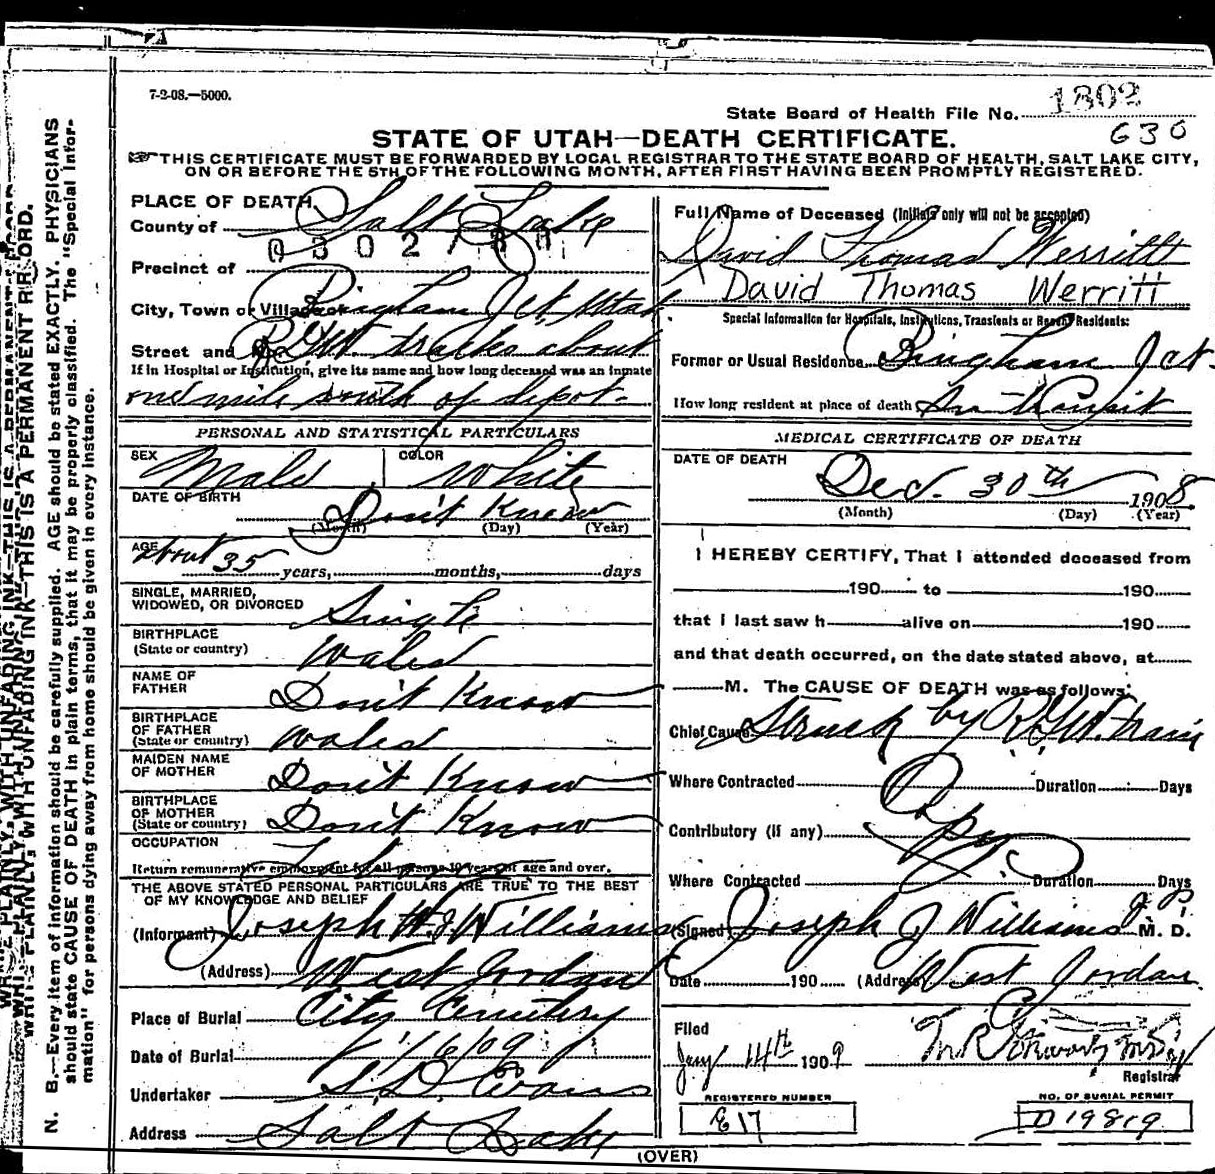 7-2-08.—5000.
State Board of Health File No. 1802
630
STATE OF UTAH—DEATH CERTIFICATE.
THIS CERTIFICATE MUST BE FORWARDED BY LOCAL REGISTRAR TO THE STATE BOARD OF HEALTH, SALT LAKE CITY,
ON OR BEFORE THE 5TH OF THE FOLLOWING MONTH, AFTER FIRST HAVING BEEN PROMPTLY REGISTERED.
PLACE OF DEATH.
County of Salt Lake
Precinct of
City, Town or Village of Bingham Jct Utah
Street and No. R.G.W. tracks about
If in Hospital or Institution, give its name and how long deceased was an inmate
one mile south of depot.
Full Name of Deceased (Initials only will not be accepted)
David Thomas Werritt
David Thomas Werritt
Special Information for Hospitals, Institutions, Transients or Recent Residents:
Former or Usual Residence Bingham Jct.
How long resident at place of death In transit
PERSONAL AND STATISTICAL PARTICULARS
SEX Male COLOR White
DATE OF BIRTH Don't Know
(Month) (Day) (Year)
AGE about 35 years, months, days
SINGLE, MARRIED,
WIDOWED, OR DIVORCED Single
BIRTHPLACE
(State or country) Wales
NAME OF
FATHER Don't Know
BIRTHPLACE
OF FATHER
(State or country) Wales
MAIDEN NAME
OF MOTHER Don't Know
BIRTHPLACE
OF MOTHER
(State or country) Don't Know
OCCUPATION
Return remunerative employment for all persons 10 years of age and over.
THE ABOVE STATED PERSONAL PARTICULARS ARE TRUE TO THE BEST
OF MY KNOWLEDGE AND BELIEF
(Informant) Joseph Williams
(Address) West Jordan
Place of Burial City Cemetery
Date of Burial 1/6/09
Undertaker S. D. Evans
Address Salt Lake
MEDICAL CERTIFICATE OF DEATH
DATE OF DEATH
Dec. 30th 1908
(Month) (Day) (Year)
I HEREBY CERTIFY, That I attended deceased from
190 to 190
that I last saw h alive on 190
and that death occurred, on the date stated above, at
M. The CAUSE OF DEATH was as follows:
Chief Cause Struck by R.G.W. train
Where Contracted Duration Days
Contributory (if any)
Where Contracted Duration Days
(Signed) Joseph J Williams J.P. M. D.
Date 190 (Address) West Jordan
Filed
Jany 14th 1909
Registrar
REGISTERED NUMBER
E17
NO. OF BURIAL PERMIT
D 19819
(OVER)
WRITE PLAINLY, WITH UNFADING INK—THIS IS A PERMANENT RECORD.
N. B.—Every item of information should be carefully supplied. AGE should be stated EXACTLY. PHYSICIANS
should state CAUSE OF DEATH in plain terms, that it may be properly classified. The "Special Infor-
mation" for persons dying away from home should be given in every instance.